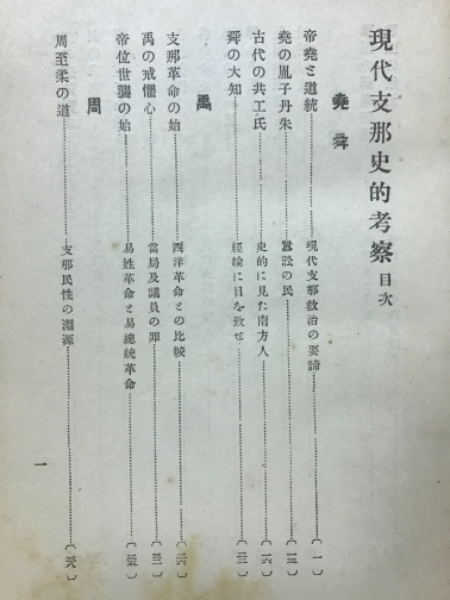 現代支那史的考察 目次
堯舜
帝堯と道統 現代支那政治の要諦 〔一〕
堯の胤子丹朱 嚚訟の民 〔一三〕
古代の共工氏 史的に見た南方人 〔一六〕
舜の大知 經綸に目を致せ 〔二二〕
禹
支那革命の始 西洋革命との比較 〔二六〕
禹の戒懼心 當局及議員の罪 〔三一〕
帝位世襲の始 易姓革命と易總統革命 〔三五〕
周
周至柔の道 支那民性の淵源 〔三八〕
一